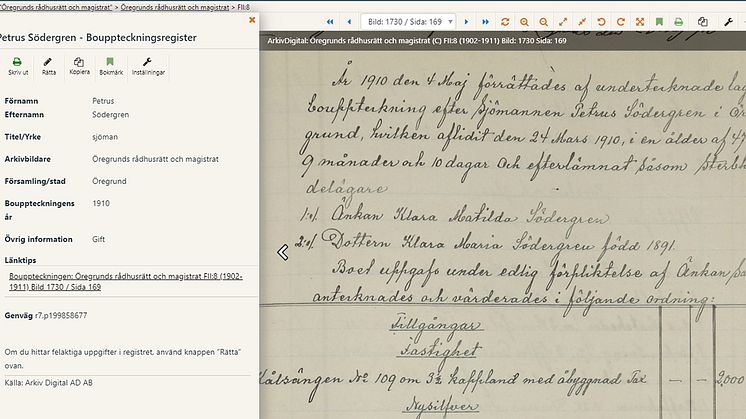 "Öregrunds rådhusrätt och magistrat" > Öregrunds rådhusrätt och magistrat > FII:8
Petrus Södergren - Bouppteckningsregister
Skriv ut
Rätta
Kopiera
Bokmärk
Inställningar
Förnamn Petrus
Efternamn Södergren
Titel/Yrke sjöman
Arkivbildare Öregrunds rådhusrätt och magistrat
Församling/stad Öregrund
Bouppteckningens år 1910
Övrig information Gift
Länktips
Bouppteckning: Öregrunds rådhusrätt och magistrat FII:8 (1902-
1911) Bild 1730 / Sida 169
Genväg r7.p199858677
Om du hittar felaktiga uppgifter i registret, använd knappen "Rätta"
ovan.
Källa: Arkiv Digital AD AB
Bild: 1730 / Sida: 169
ArkivDigital: Öregrunds rådhusrätt och magistrat (C) FII:8 (1902-1911) Bild: 1730 Sida: 169
År 1910 den 4 Maj förrättades af undertecknade lag
bouppteckning efter Sjömannen Petrus Södergren i Öre
grund, hvilken aflidit den 24 Mars 1910, i en ålder af 47
9 månader och 10 dagar och efterlämnat såsom sterbh
delägare
1:o/. Änkan Klara Matilda Södergren
2:o/. Dottern Klara Maria Södergren född 1891.
Boet uppgafs under edlig förpliktelse af Änkan
antecknades och värderades i följande ordning:
Tillgångar
Fastighet
Kålsängen No 109 om 3½ kappland med åbyggnad Tax — — 2,000
Nysilfver